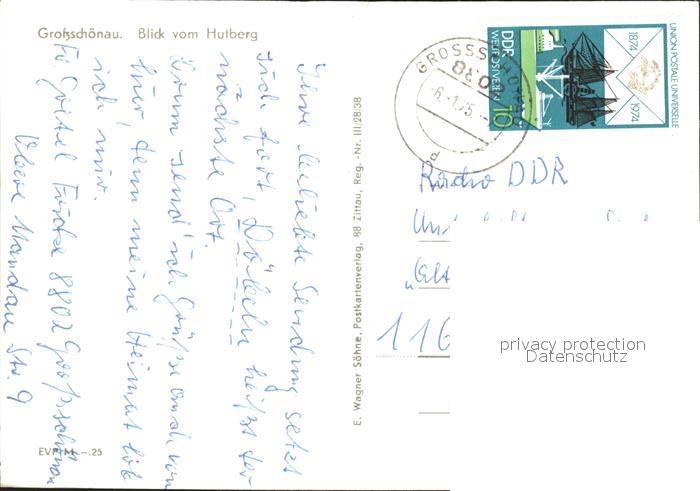 Großschönau. Blick vom Hutberg
Ihre beliebte Sendung setzt
sich fort, Döbeln heißt der
nächste Ort.
Drum send' ich Grüße auch von
hier, denn meine Heimat lob
ich mir.
Fr. Gretel Fritze 8802 Großschönau
Obere Mandau Str. 9
EVP M –.25
E. Wagner Söhne, Postkartenverlag, 88 Zittau, Reg.-Nr. III/28/38
GROSSSCHÖNAU
8038
-6.-1.75.
DDR
WELTPOSTVEREIN
10
1874
1974
UNION POSTALE UNIVERSELLE
Radio DDR
116
privacy protection
Datenschutz